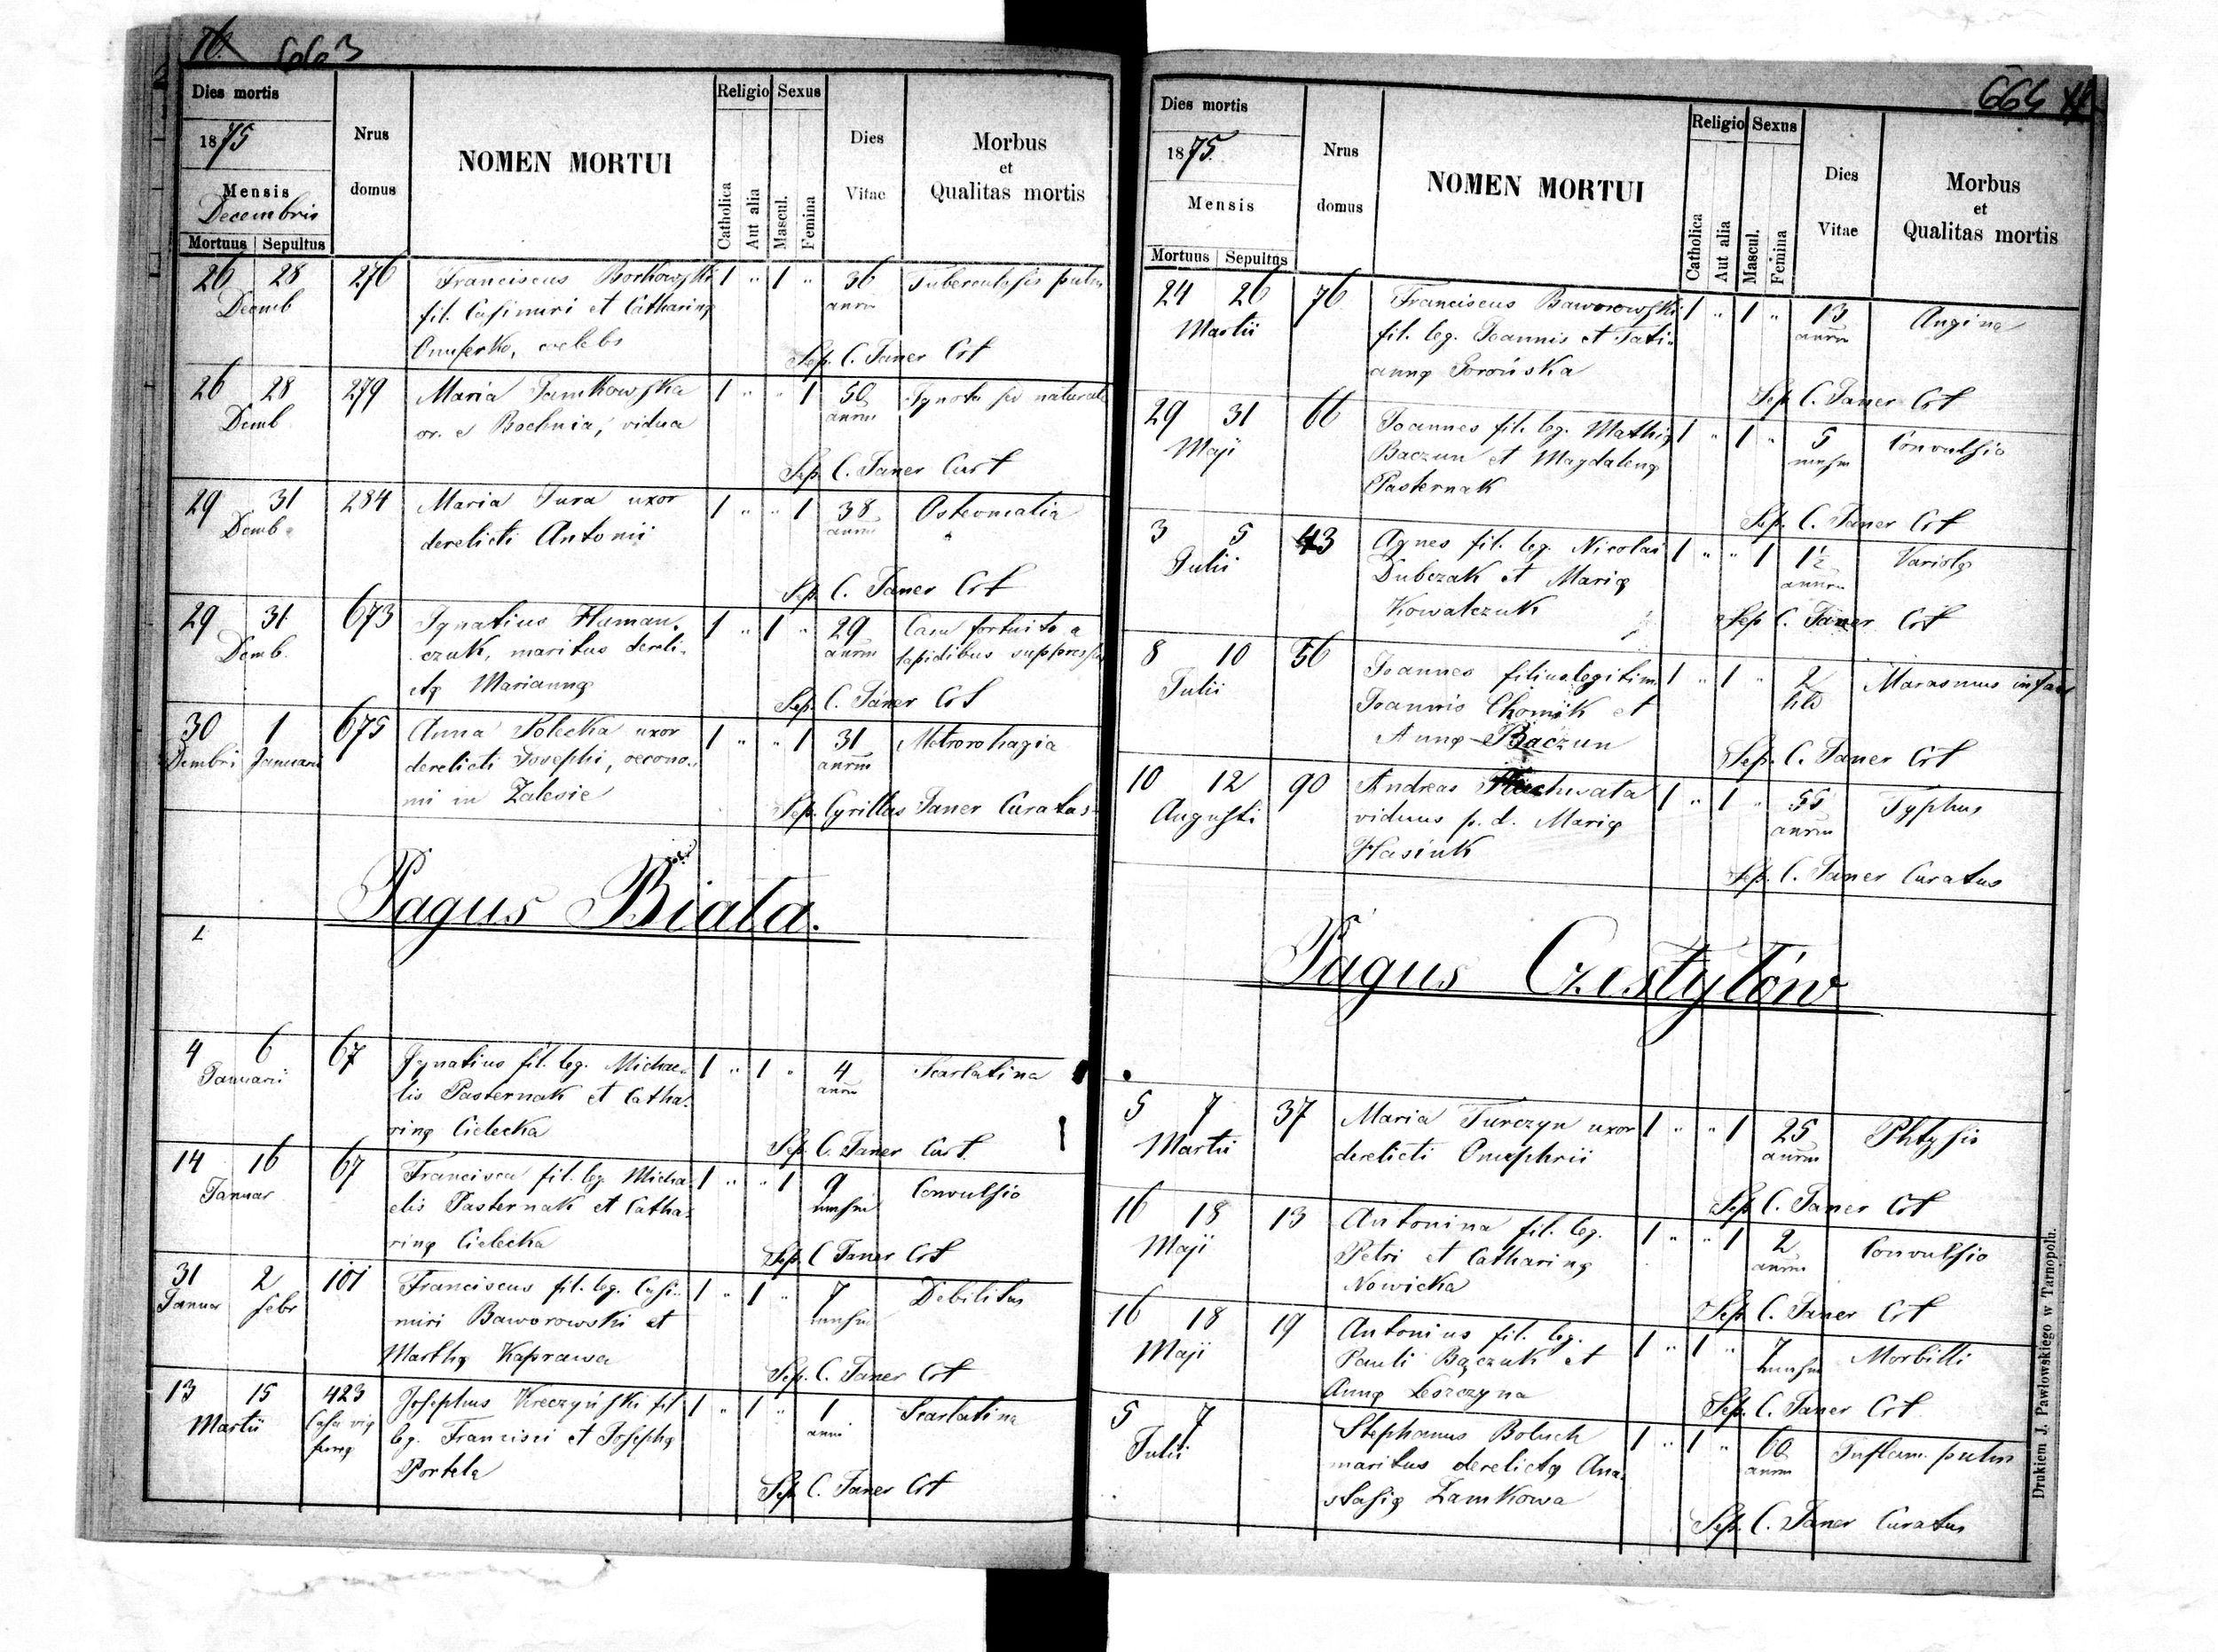 76. 663
Dies mortis
1875
Mensis
Decembris
Mortuus Sepultus
Nrus
domus
NOMEN MORTUI
Religio
Catholica
Aut alia
Sexus
Mascul.
Femina
Dies
Vitae
Morbus
et
Qualitas mortis
26 28 276 Franciscus Borkowski 1 " 1 " 36 Tuberculosis pulm
Decmb fil. Casimiri et Catharinę annr
Onuferko, coelebs
Sep. C. Janer Crt
26 28 279 Maria Jamkowska 1 " " 1 50 Ignota sed naturale
Demb or. e Bochnia, vidua annr
Sep. C. Janer Curt
29 31 284 Maria Jura uxor 1 " " 1 38 Osteomalia
Demb derelicti Antonii annr
Sep. C. Janer Crt
29 31 673 Ignatius Human 1 " 1 " 29 Casu fortuito a
Demb. czuk, maritus dereli- annr lapidibus suppressus
ctę Mariannę
Sep. C. Janer Crt
30 1 675 Anna Polecka uxor 1 " " 1 31 Metrorohagia
Dembri Januarii derelicti Josephi, oecono- annr
mi in Zalesie
Sep. Cyrillus Janer Curatus
Pagus Biała.
4 6 67 Ignatius fil. leg. Michae- 1 " 1 " 4 Scarlatina
Januarii lis Pasternak et Catha- annr
rinę Cielecka
Sep. C. Janer Curt.
14 16 67 Francisca fil. leg. Micha- 1 " " 1 9 Convulsio
Januar elis Pasternak et Catha- mensm
rinę Cielecka
Sep. C Janer Crt
31 2 101 Franciscus fil. leg. Casi- 1 " 1 " 7 Debilitas
Januar febr miri Baworowski et mensm
Marthę Kaprawa
Sep. C. Janer Crt
13 15 423 Josephus Kreczyński fil 1 " 1 " 1 Scarlatina
Martii leg. Francisci et Josephę anni
Portela
Sep. C. Janer Crt
664
Dies mortis
1875.
Mensis
Mortuus Sepultus
Nrus
domus
NOMEN MORTUI
Religio
Catholica
Aut alia
Sexus
Mascul.
Femina
Dies
Vitae
Morbus
et
Qualitas mortis
24 26 76 Franciscus Baworowski 1 " 1 " 13 Angina
Martii fil. leg. Joannis et Tati- annr
annę
Sep. C. Janer Crt
29 31 66 Joannes fil. leg. Mathię 1 " 1 " 5 Convulsio
Maji Baczun et Magdalenę mensm
Pasternak
Sep. C. Janer Crt
3 5 43 Agnes fil. leg. Nicolai 1 " " 1 1½ Variolę
Julii Dubczak et Marię annr
Kowalczuk
Sep C. Janer Crt
8 10 56 Joannes filius legitim 1 " 1 " 2 Marasmus infant
Julii Joannis Chomik et
Annę Baczun
Sep. C. Janer Crt
10 12 90 Andreas 1 " 1 " 55 Typhus
Augusti viduus p. d. Marię annrm
Hasiuk
Sep. C. Janer Curatus
Pagus Czestyłów
5 7 37 Maria Turczyn uxor 1 " " 1 25 Phtysis
Martii derelicti Onuphrii annrm
Sep. C. Janer Crt
16 18 13 Antonina fil. leg. 1 " " 1 2 Convulsio
Maji Petri et Catharinę annr
Nowicka
Sep. C. Janer Crt
16 18 19 Antonius fil. leg. 1 " 1 " 7 Morbilli
Maji Pauli Bączuk et mensm
Annę Leszczyna
Sep. C. Janer Crt
5 7 Stephanus Boluch 1 " 1 " 60 Inflam. pulm
Julii maritus derelictę Ana- annrm
stasię Zamkowa
Sep. C. Janer Curatus
Drukiem J. Pawłowskiego w Tarnopolu.